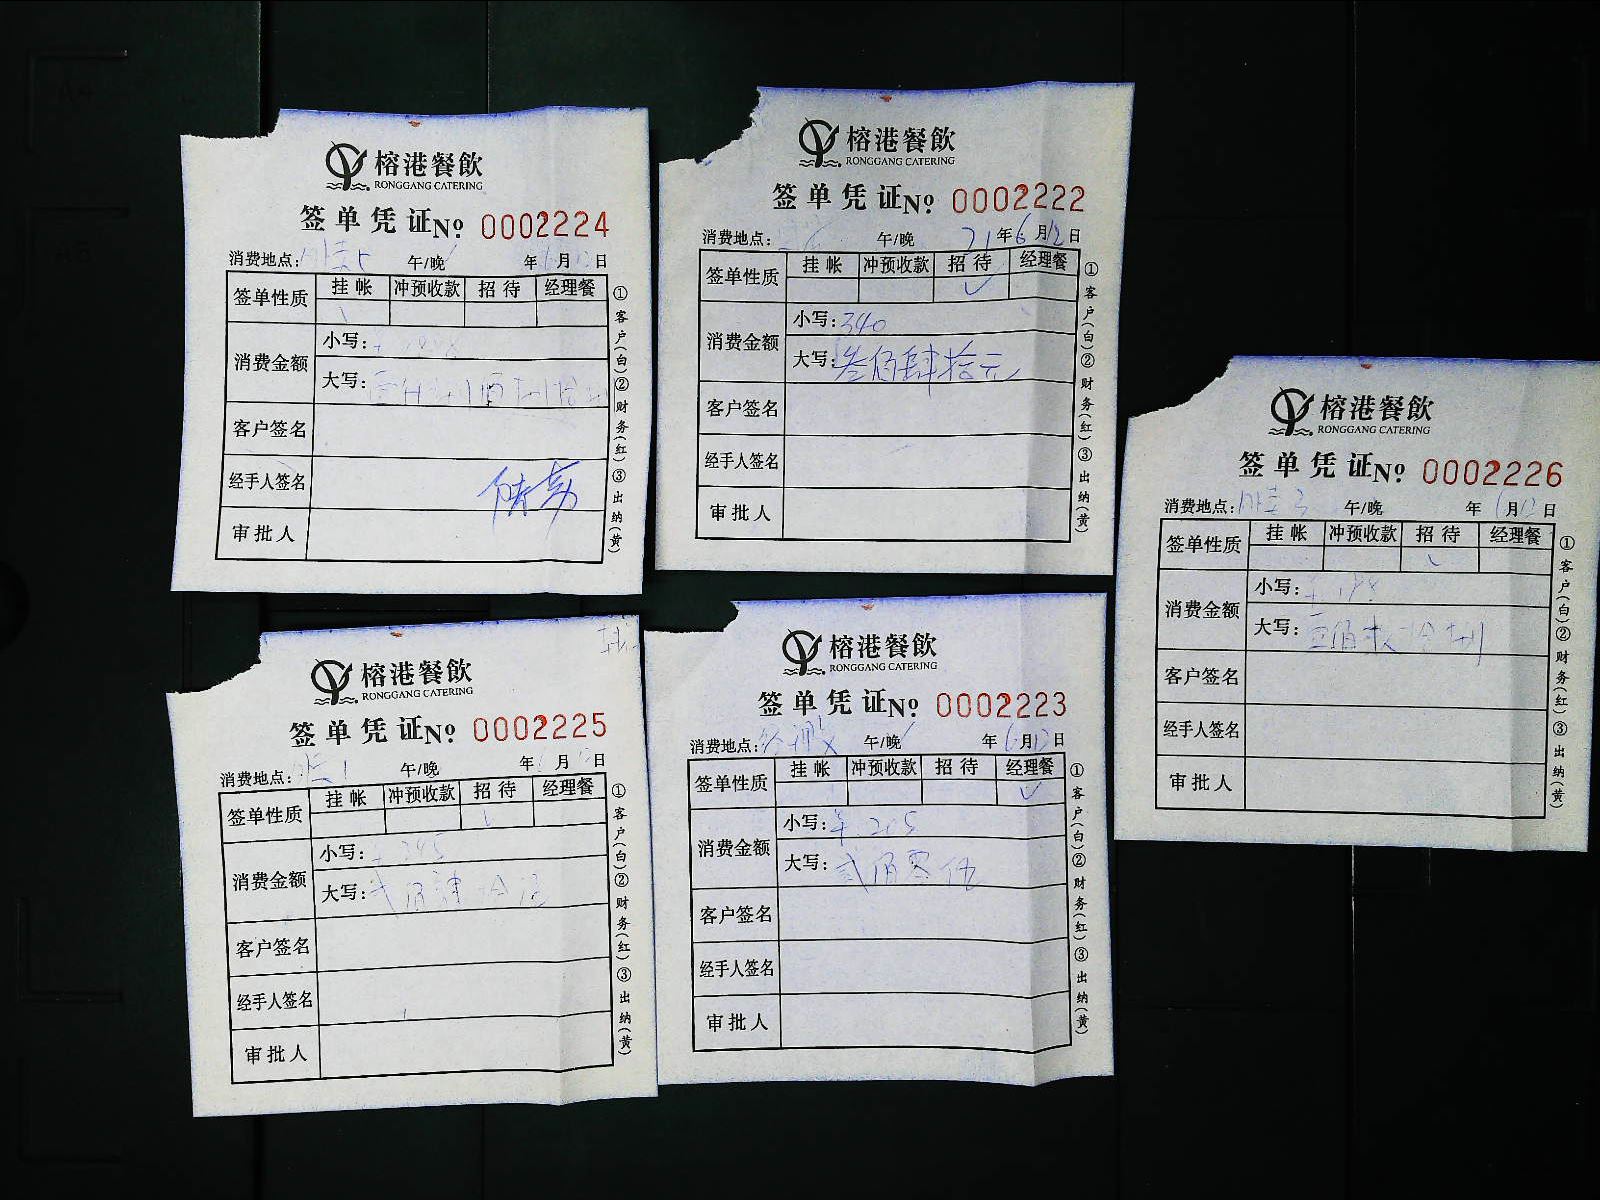 榕港餐飲
RONGGANG CATERING
签单凭证 No 0002224
消费地点: 午/晚 年6月12日
签单性质 挂帐 冲预收款 招待 经理餐
消费金额 小写:
大写:
客户签名
经手人签名
审批人
①客户(白)②财务(红)③出纳(黄)
榕港餐飲
RONGGANG CATERING
签单凭证 No 0002222
消费地点: 午/晚 21年6月12日
签单性质 挂帐 冲预收款 招待 经理餐
✓
消费金额 小写:340
大写:叁佰肆拾元
客户签名
经手人签名
审批人
①客户(白)②财务(红)③出纳(黄)
榕港餐飲
RONGGANG CATERING
签单凭证 No 0002226
消费地点: 午/晚 年6月12日
签单性质 挂帐 冲预收款 招待 经理餐
✓
消费金额 小写:
大写:壹佰玖拾捌
客户签名
经手人签名
审批人
①客户(白)②财务(红)③出纳(黄)
榕港餐飲
RONGGANG CATERING
签单凭证 No 0002225
消费地点: 午/晚 年 月 日
签单性质 挂帐 冲预收款 招待 经理餐
消费金额 小写:245
大写:贰佰肆拾伍
客户签名
经手人签名
审批人
①客户(白)②财务(红)③出纳(黄)
榕港餐飲
RONGGANG CATERING
签单凭证 No 0002223
消费地点: 午/晚 年6月12日
签单性质 挂帐 冲预收款 招待 经理餐
✓
消费金额 小写:205
大写:贰佰零伍
客户签名
经手人签名
审批人
①客户(白)②财务(红)③出纳(黄)